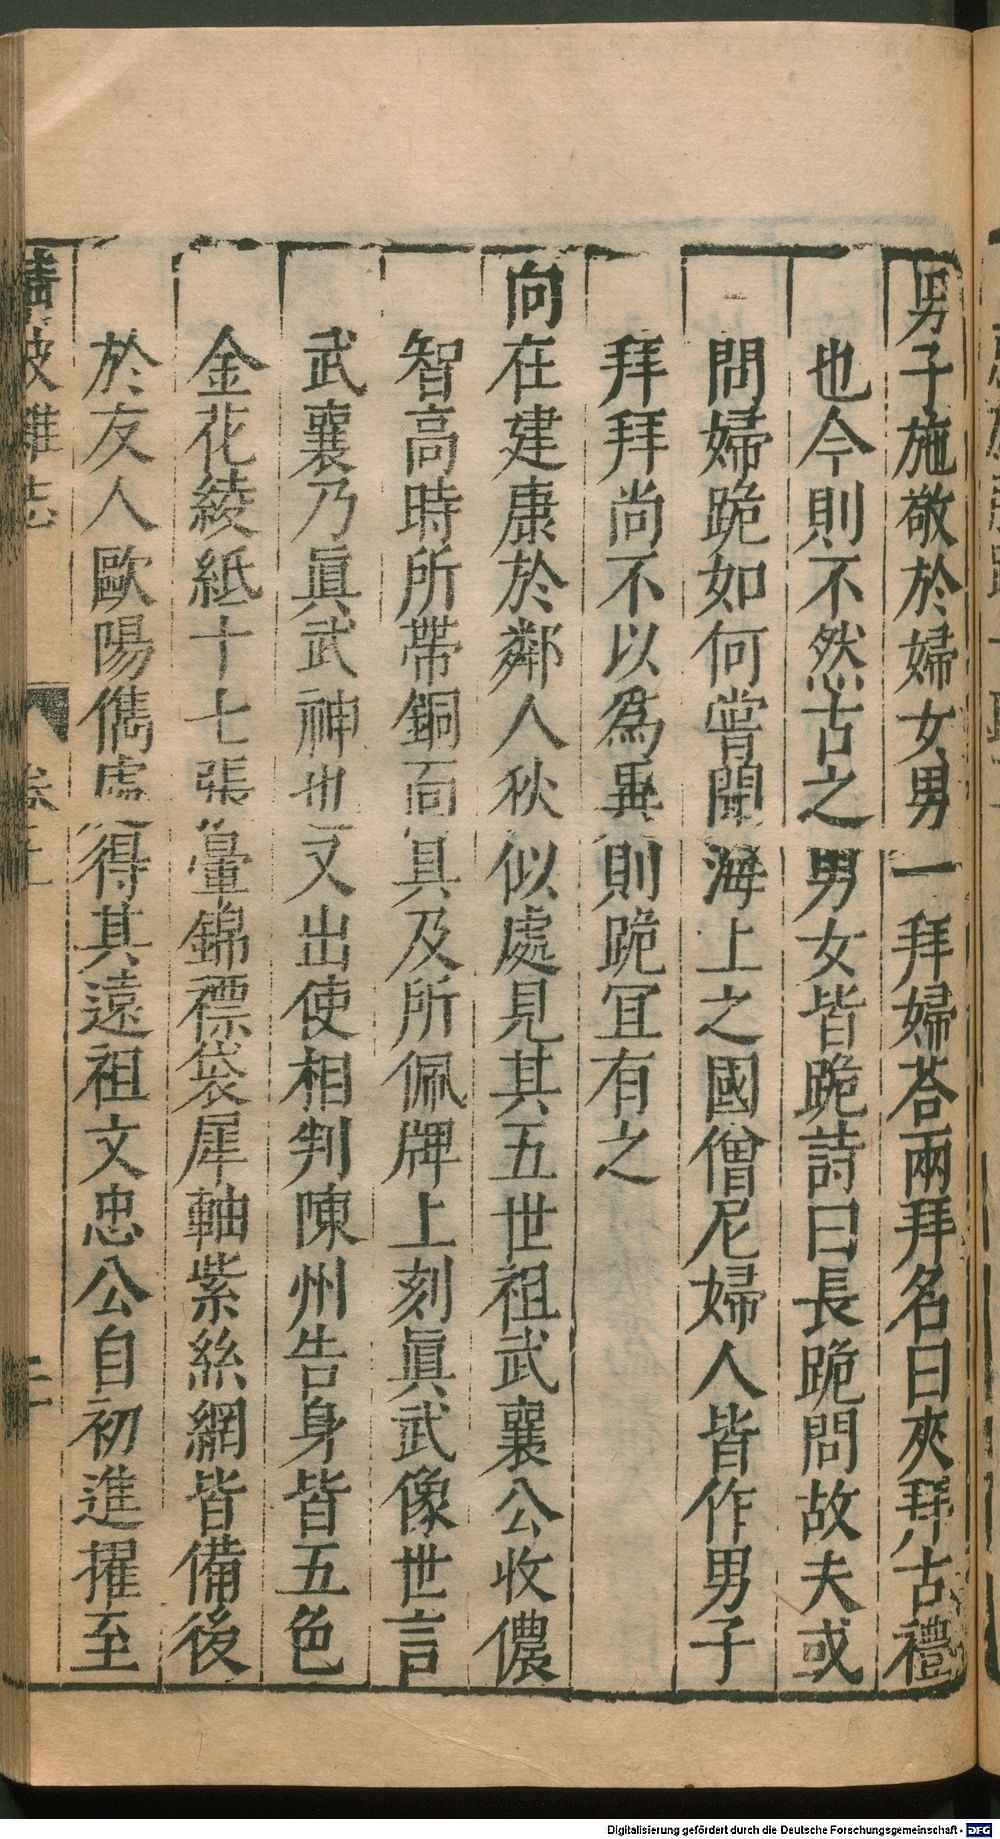 男子施敬於婦女男一拜婦荅兩拜名曰夾拜古禮
也今則不然古之男女皆跪詩曰長跪問故夫或
問婦跪如何嘗聞海上之國僧尼婦人皆作男子
拜拜尚不以爲異則跪宜有之
向在建康於鄰人秋似處見其五世祖武襄公收儂
智高時所帶銅面具及所佩牌上刻眞武像世言
武襄乃眞武神也又出使相判陳州告身皆五色
金花綾紙十七張暈錦褾袋犀軸紫絲網皆備後
於友人歐陽儁處得其遠祖文忠公自初進擢至
清波雜志 卷 二
Digitalisierung gefördert durch die Deutsche Forschungsgemeinschaft - DFG